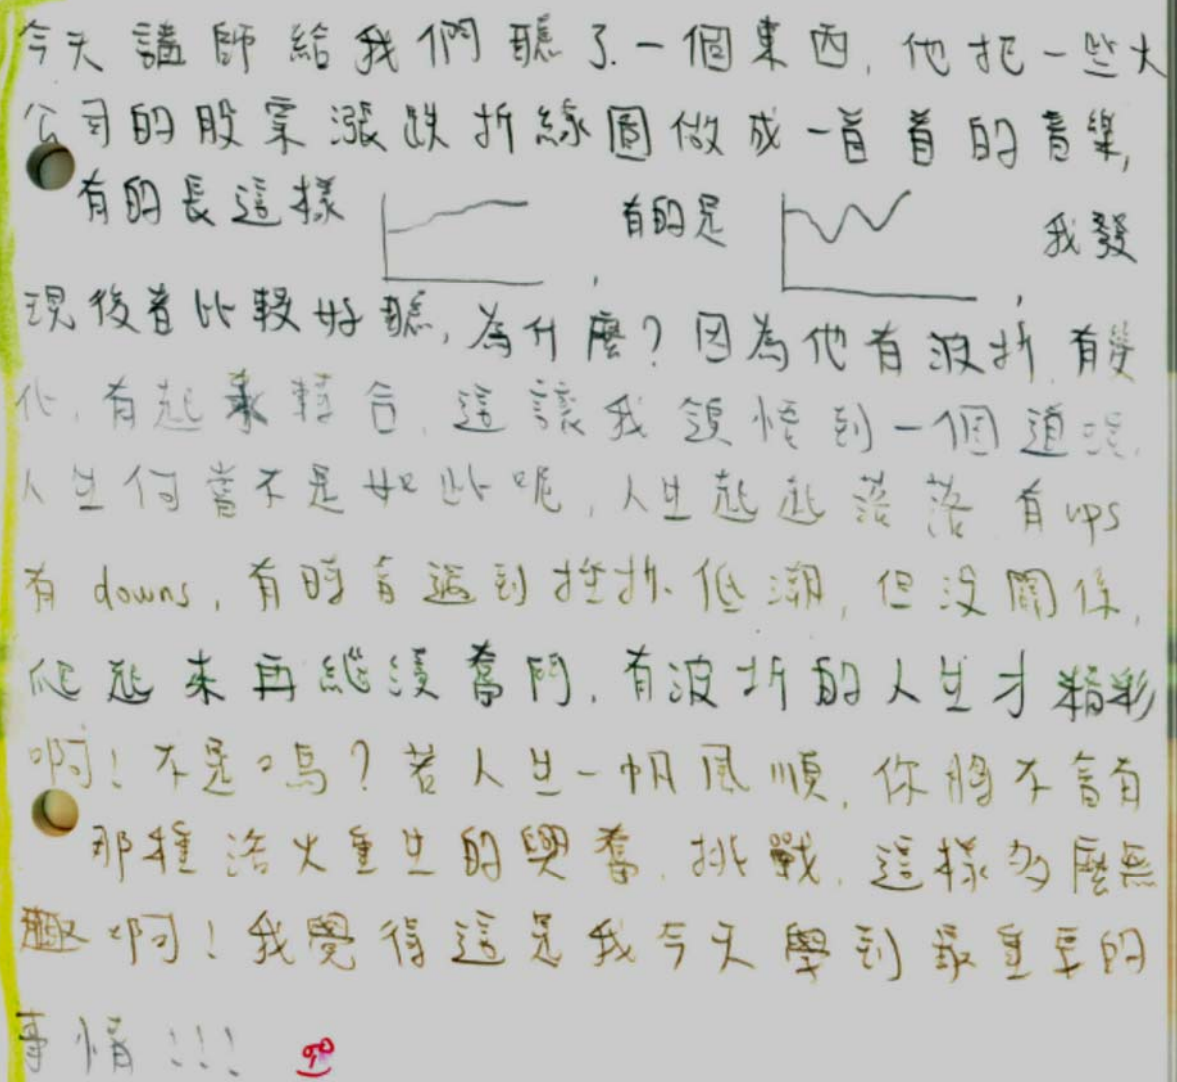 今天講師給我們聽了一個東西,他把一些大
公司的股票漲跌折線圖做成一首首的音樂,
有的長這樣 , 有的是 , 我發
現後者比較好聽,為什麼?因為他有波折,有變
化,有起承轉合,這讓我領悟到一個道理,
人生何嘗不是如此呢,人生起起落落有ups
有downs,有時會遇到挫折、低潮,但沒關係,
爬起來再繼續奮鬥,有波折的人生才精彩
啊!不是嗎?若人生一帆風順,你將不會有
那種浴火重生的興奮、挑戰,這樣多麼無
趣啊!我覺得這是我今天學到最重要的
事情!!!
90